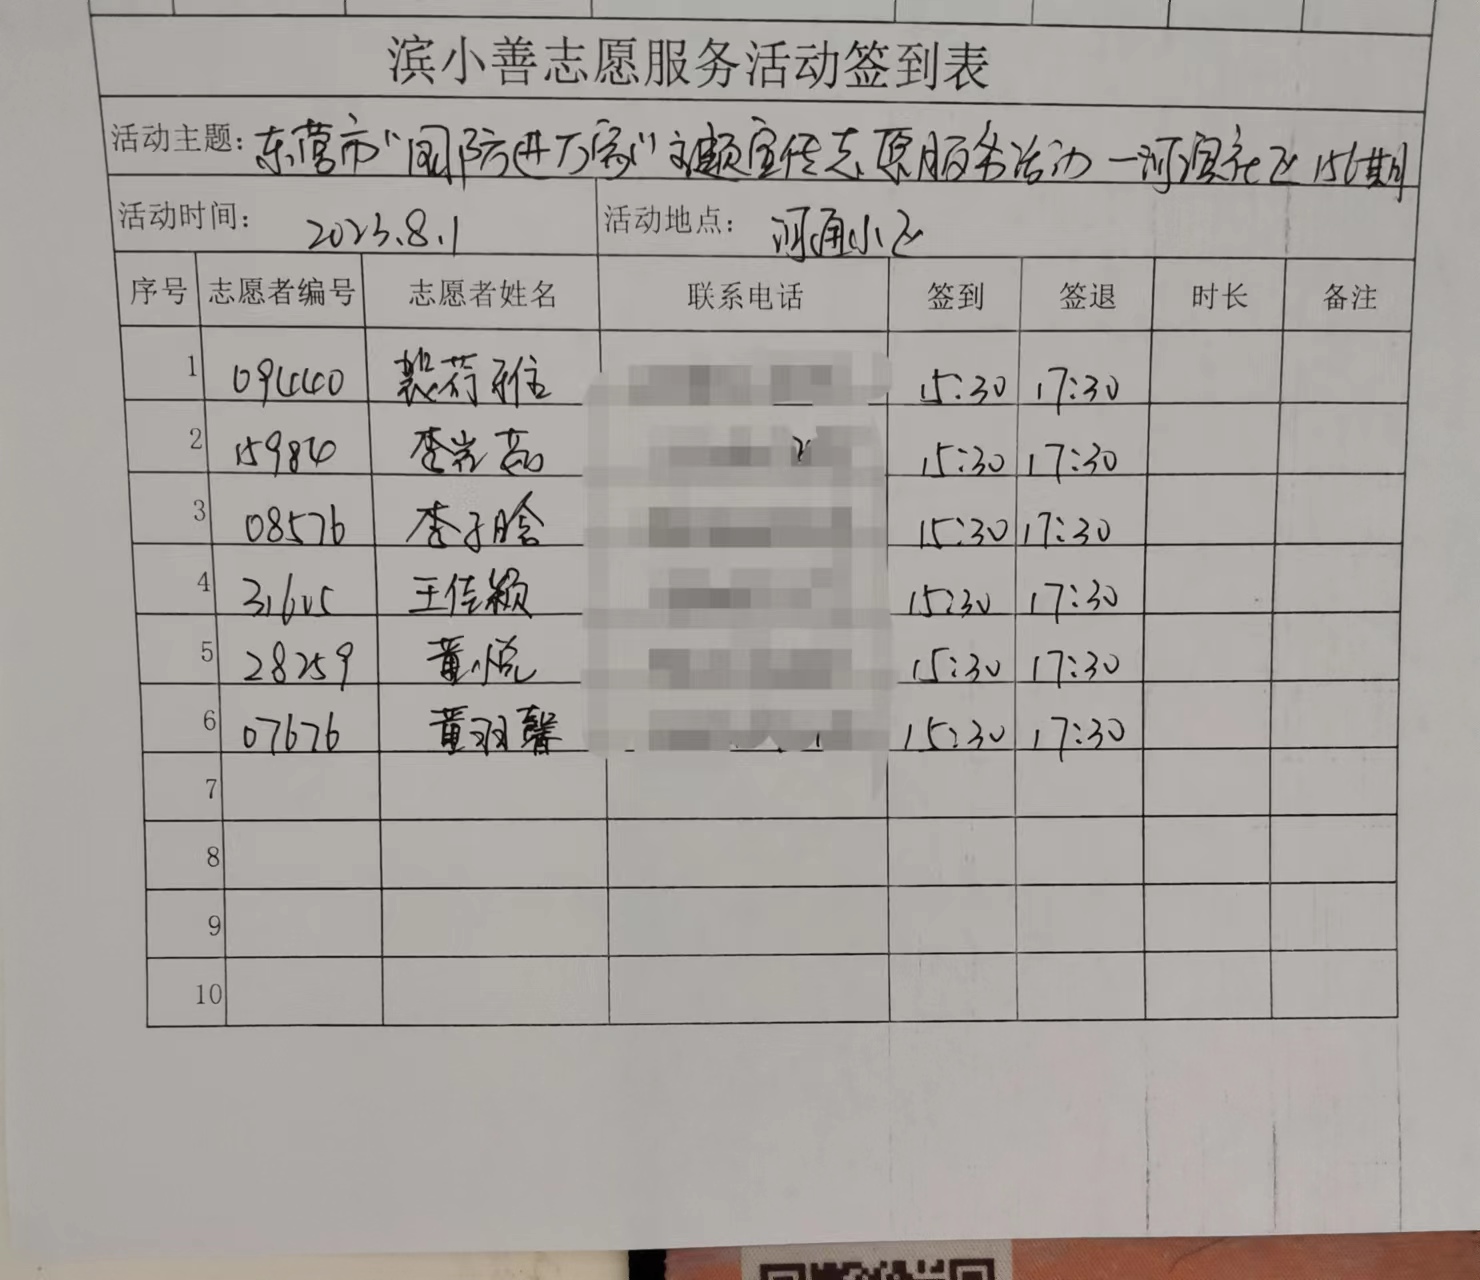 滨小善志愿服务活动签到表
活动主题：东营市“国防进万家”主题宣传志愿服务活动—河滨社区156期
活动时间： 2023.8.1 活动地点： 河通小区
序号 志愿者编号 志愿者姓名 联系电话 签到 签退 时长 备注
1 094440 裴荷雅 15:30 17:30
2 15984 李 15:30 17:30
3 08576 李子晗 15:30 17:30
4 31605 王佳颖 15:30 17:30
5 28259 董悦 15:30 17:30
6 07676 董羽馨 15:30 17:30
7
8
9
10